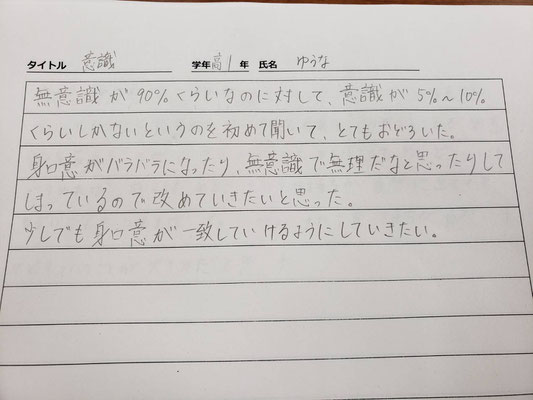 タイトル 意識 学年 高1 年 氏名 ゆうな
無意識が90%くらいなのに対して、意識が5%〜10%
くらいしかないというのを初めて聞いて、とてもおどろいた。
身口意がバラバラになったり、無意識で無理だなと思ったりして
しまっているので改めていきたいと思った。
少しでも身口意が一致していけるようにしていきたい。